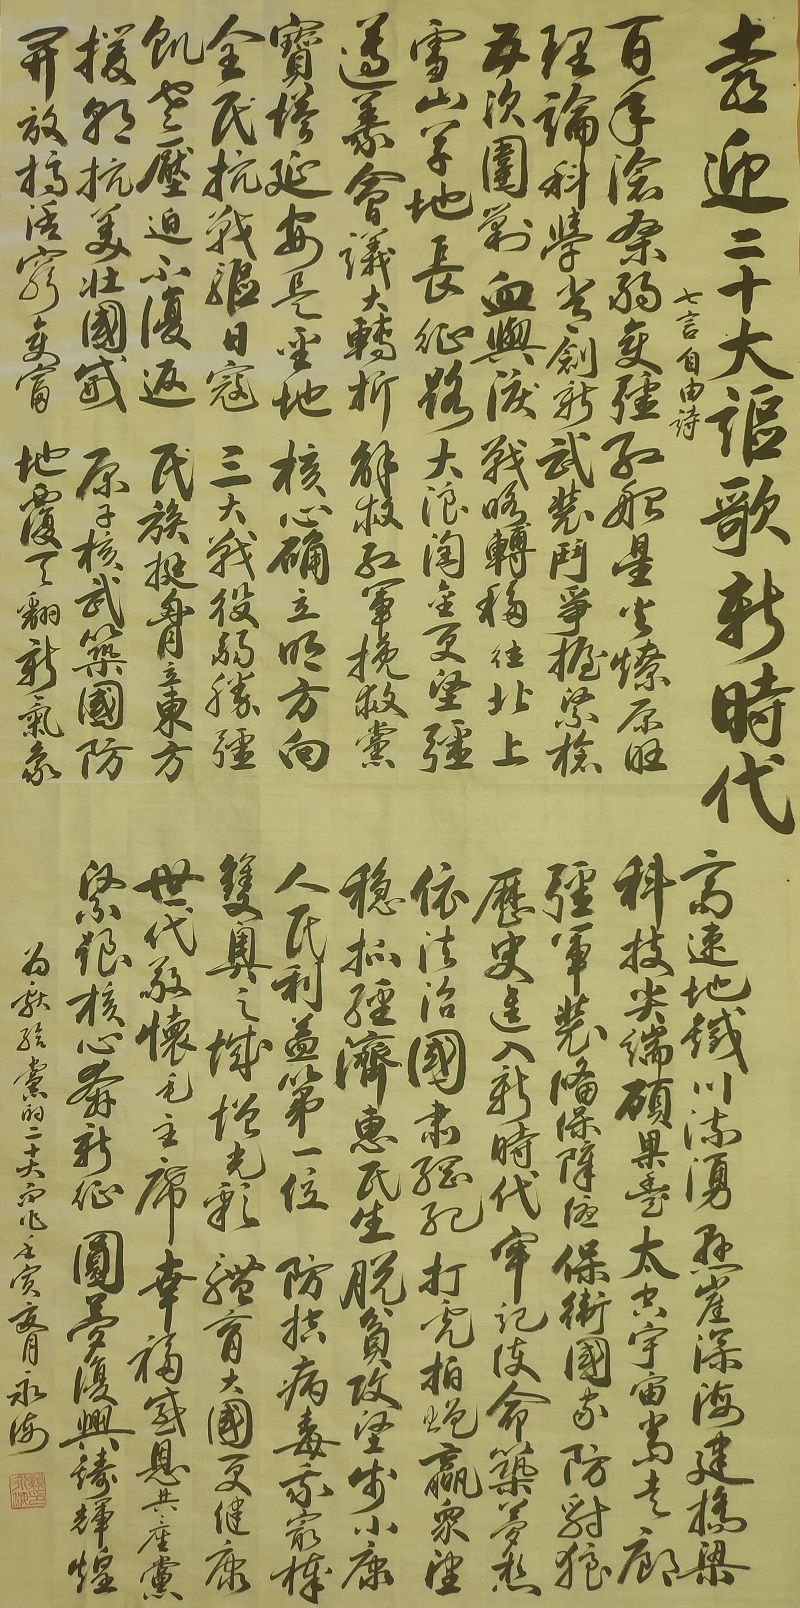 喜迎二十大謳歌新時代
七言自由詩
百年滄桑弱變彊 紅船星火燎原旺
理論科學裝創新 武裝鬥爭握緊槍
五次圍剿血與淚 戰略轉移往北上
雪山草地長征路 大浪淘金更堅彊
遵義會議大轉折 解救紅軍挽救黨
寶塔延安是聖地 核心確立明方向
全民抗戰驅日寇 三大戰役弱勝彊
飢寒壓迫不復返 民族挺脊立東方
援朝抗美壯國威 原子核武築國防
開放搞活窮變富 地覆天翻新氣象
高速地鐵川流湧 懸崖深海建橋梁
科技尖端碩果壘 太空宇宙當走廊
彊軍裝備保障後 保衛國家防豺狼
歷史進入新時代 牢記使命築夢想
依法治國肅綱紀 打虎拍蠅贏衆望
穩抓經濟惠民生 脱貧攻堅步小康
人民利益第一位 防控病毒我最棒
雙奧之城增光彩 體育大國更健康
世代敬懷毛主席 幸福感恩共產黨
緊跟核心奔新征 圓夢復興鑄輝煌
為獻給黨的二十大而作壬寅夏月永海